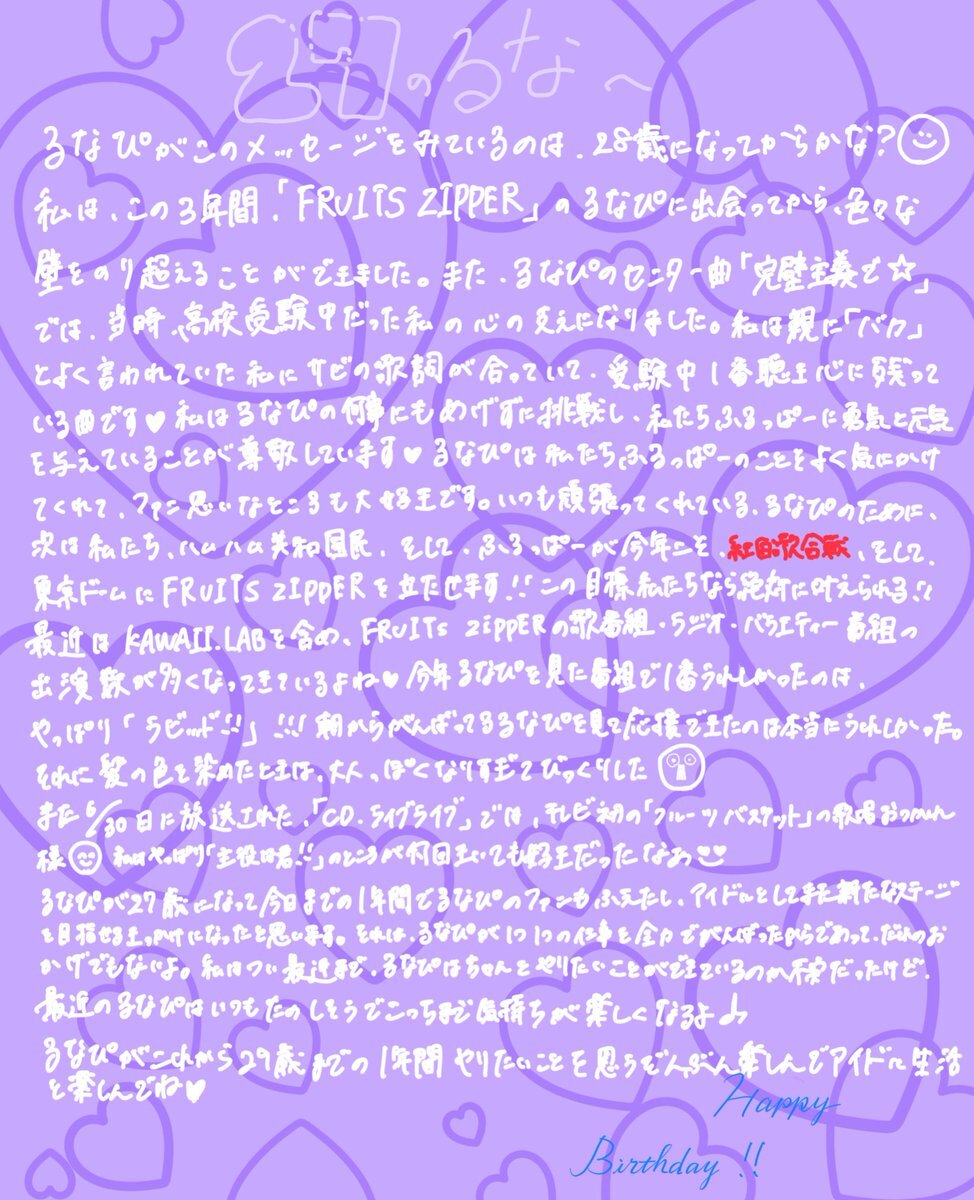 のるな〜
るなぴがこのメッセージをみているのは、28歳になってからかな?
私は、この3年間、「FRUITS ZIPPER」のるなぴに出会ってから、色々な
壁をのり超えることができました。また、るなぴのセンター曲「完璧主義で☆」
では、当時、高校受験中だった私の心の支えになりました。私は親に「バカ」
とよく言われていた私にサビの歌詞が合っていて、受験中1番聴き心に残って
いる曲です♥私はるなぴの何事にもめげずに挑戦し、私たちふるっぱーに勇気と元気
を与えていることが尊敬しています♥るなぴは私たちふるっぱーのことをよく気にかけ
てくれて、ファン思いなところも大好きです。いつも頑張ってくれている、るなぴのために、
次は私たち、ハムハム共和国民、そして、ふるっぱーが今年こそ、紅白歌合戦、そして、
東京ドームにFRUITS ZIPPERを立たせます!!この目標私たちなら絶対に叶えられる!!
最近はKAWAII.LABを含め、FRUITS ZIPPERの歌番組・ラジオ・バラエティー番組の
出演数が多くなってきているよね♥今年るなぴを見た番組で1番うれしかったのは、
やっぱり「ラビット!!」!!!朝からがんばってるるなぴを見て応援できたのは本当にうれしかった。
それに髪の色を染めたときは、大人っぽくなりすぎてびっくりした
また6/30日に放送された、「CD.ライブライブ」では、テレビ初の「フルーツバスケット」の歌唱おつかれ
様 私はやっぱり「主役は君!!」のところが何回きいても好きだったなぁ
るなぴが27歳になって今日までの1年間でるなぴのファンもふえたし、アイドルとしてまた新たなステージ
を目指せるきっかけになったと思います。それは、るなぴが1つ1つの仕事を全力でがんばったからであって、だれのお
かげでもないよ。私はつい最近まで、るなぴはちゃんとやりたいことができているのか不安だったけど、
最近のるなぴはいつもたのしそうでこっちまで気持ちが楽しくなるよ♪
るなぴがこれから29歳までの1年間やりたいことを思うぞんぶん楽しんでアイドル生活
を楽しんでね♥
Happy
Birthday !!